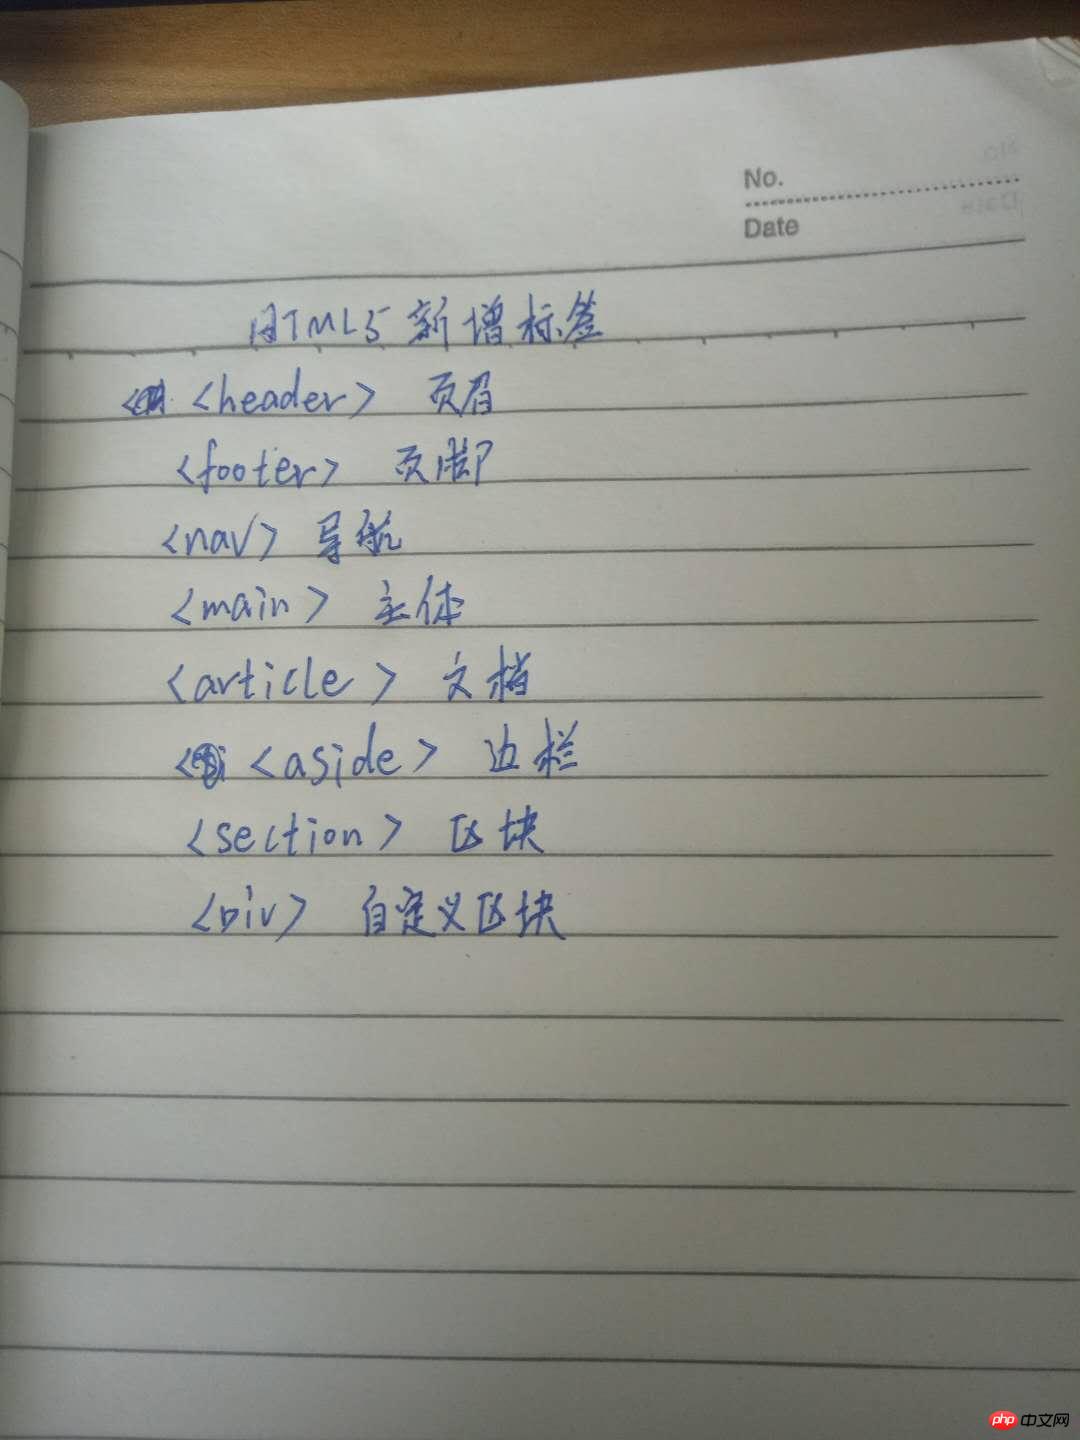 No.
Date
HTML5新增标签
<header> 页眉
<footer> 页脚
<nav> 导航
<main> 主体
<article> 文档
<aside> 边栏
<section> 区块
<Div> 自定义区块
php 中文网